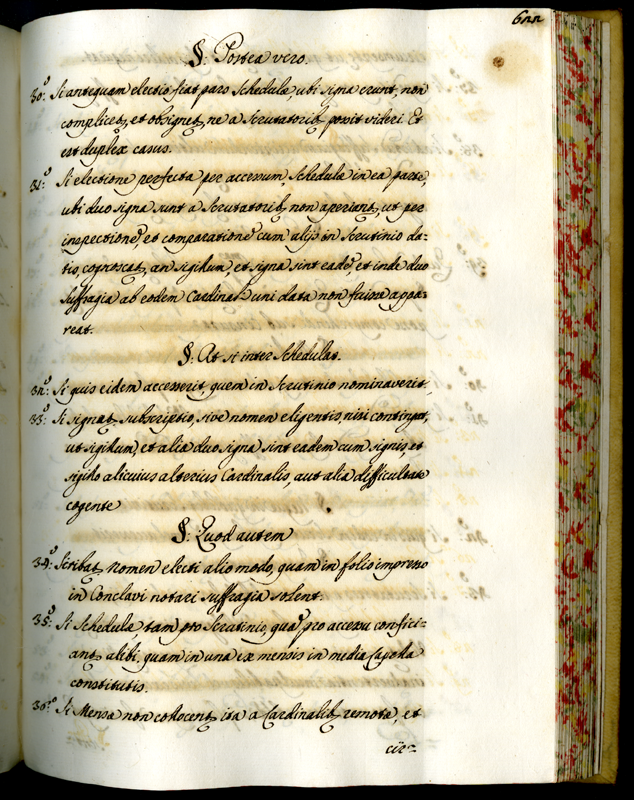 622
§: Postea vero.
30:º Si antequam electio fiat pars Schedulæ, ubi signa erunt, non
complicet, et obsignet, ne a Scrutatorib possit videri. Et
est duplex casus.
31:º Si electione perfecta per accessum, Schedulæ in ea parte,
ubi duo signa sunt a Scrutatorib non aperiant, ut per
inspectione, et comparatione cum alijs in Scrutinio da-
tis, cognoscat, an sigillum, et signa sint eade, et inde duo
suffragia ab eodem Cardinali uni data non fuisse appa-
reat.
§: At si inter Schedulas.
32:º Si quis eidem accesserit, quem in Scrutinio nominaverit.
33:º Si signat, subscriptio, sive nomen eligentis, nisi contingat,
ut sigillum, et alia duo signa sint eadem cum signis, et
sigillo alicuius alterius Cardinalis, aut alia difficultate
cogente
§: Quod autem
34:º Scribat nomen electi alio modo, quam in folio impresso
in Conclavi notari suffragia solent.
35:º Si Schedulæ, tam pro Scrutinio, qua pro accessu confici-
ant alibi, quam in una ex mensis in media Capella
constitutis.
36:º Si Mensæ non collocent ita a Cardinalib remotæ, et
cir=